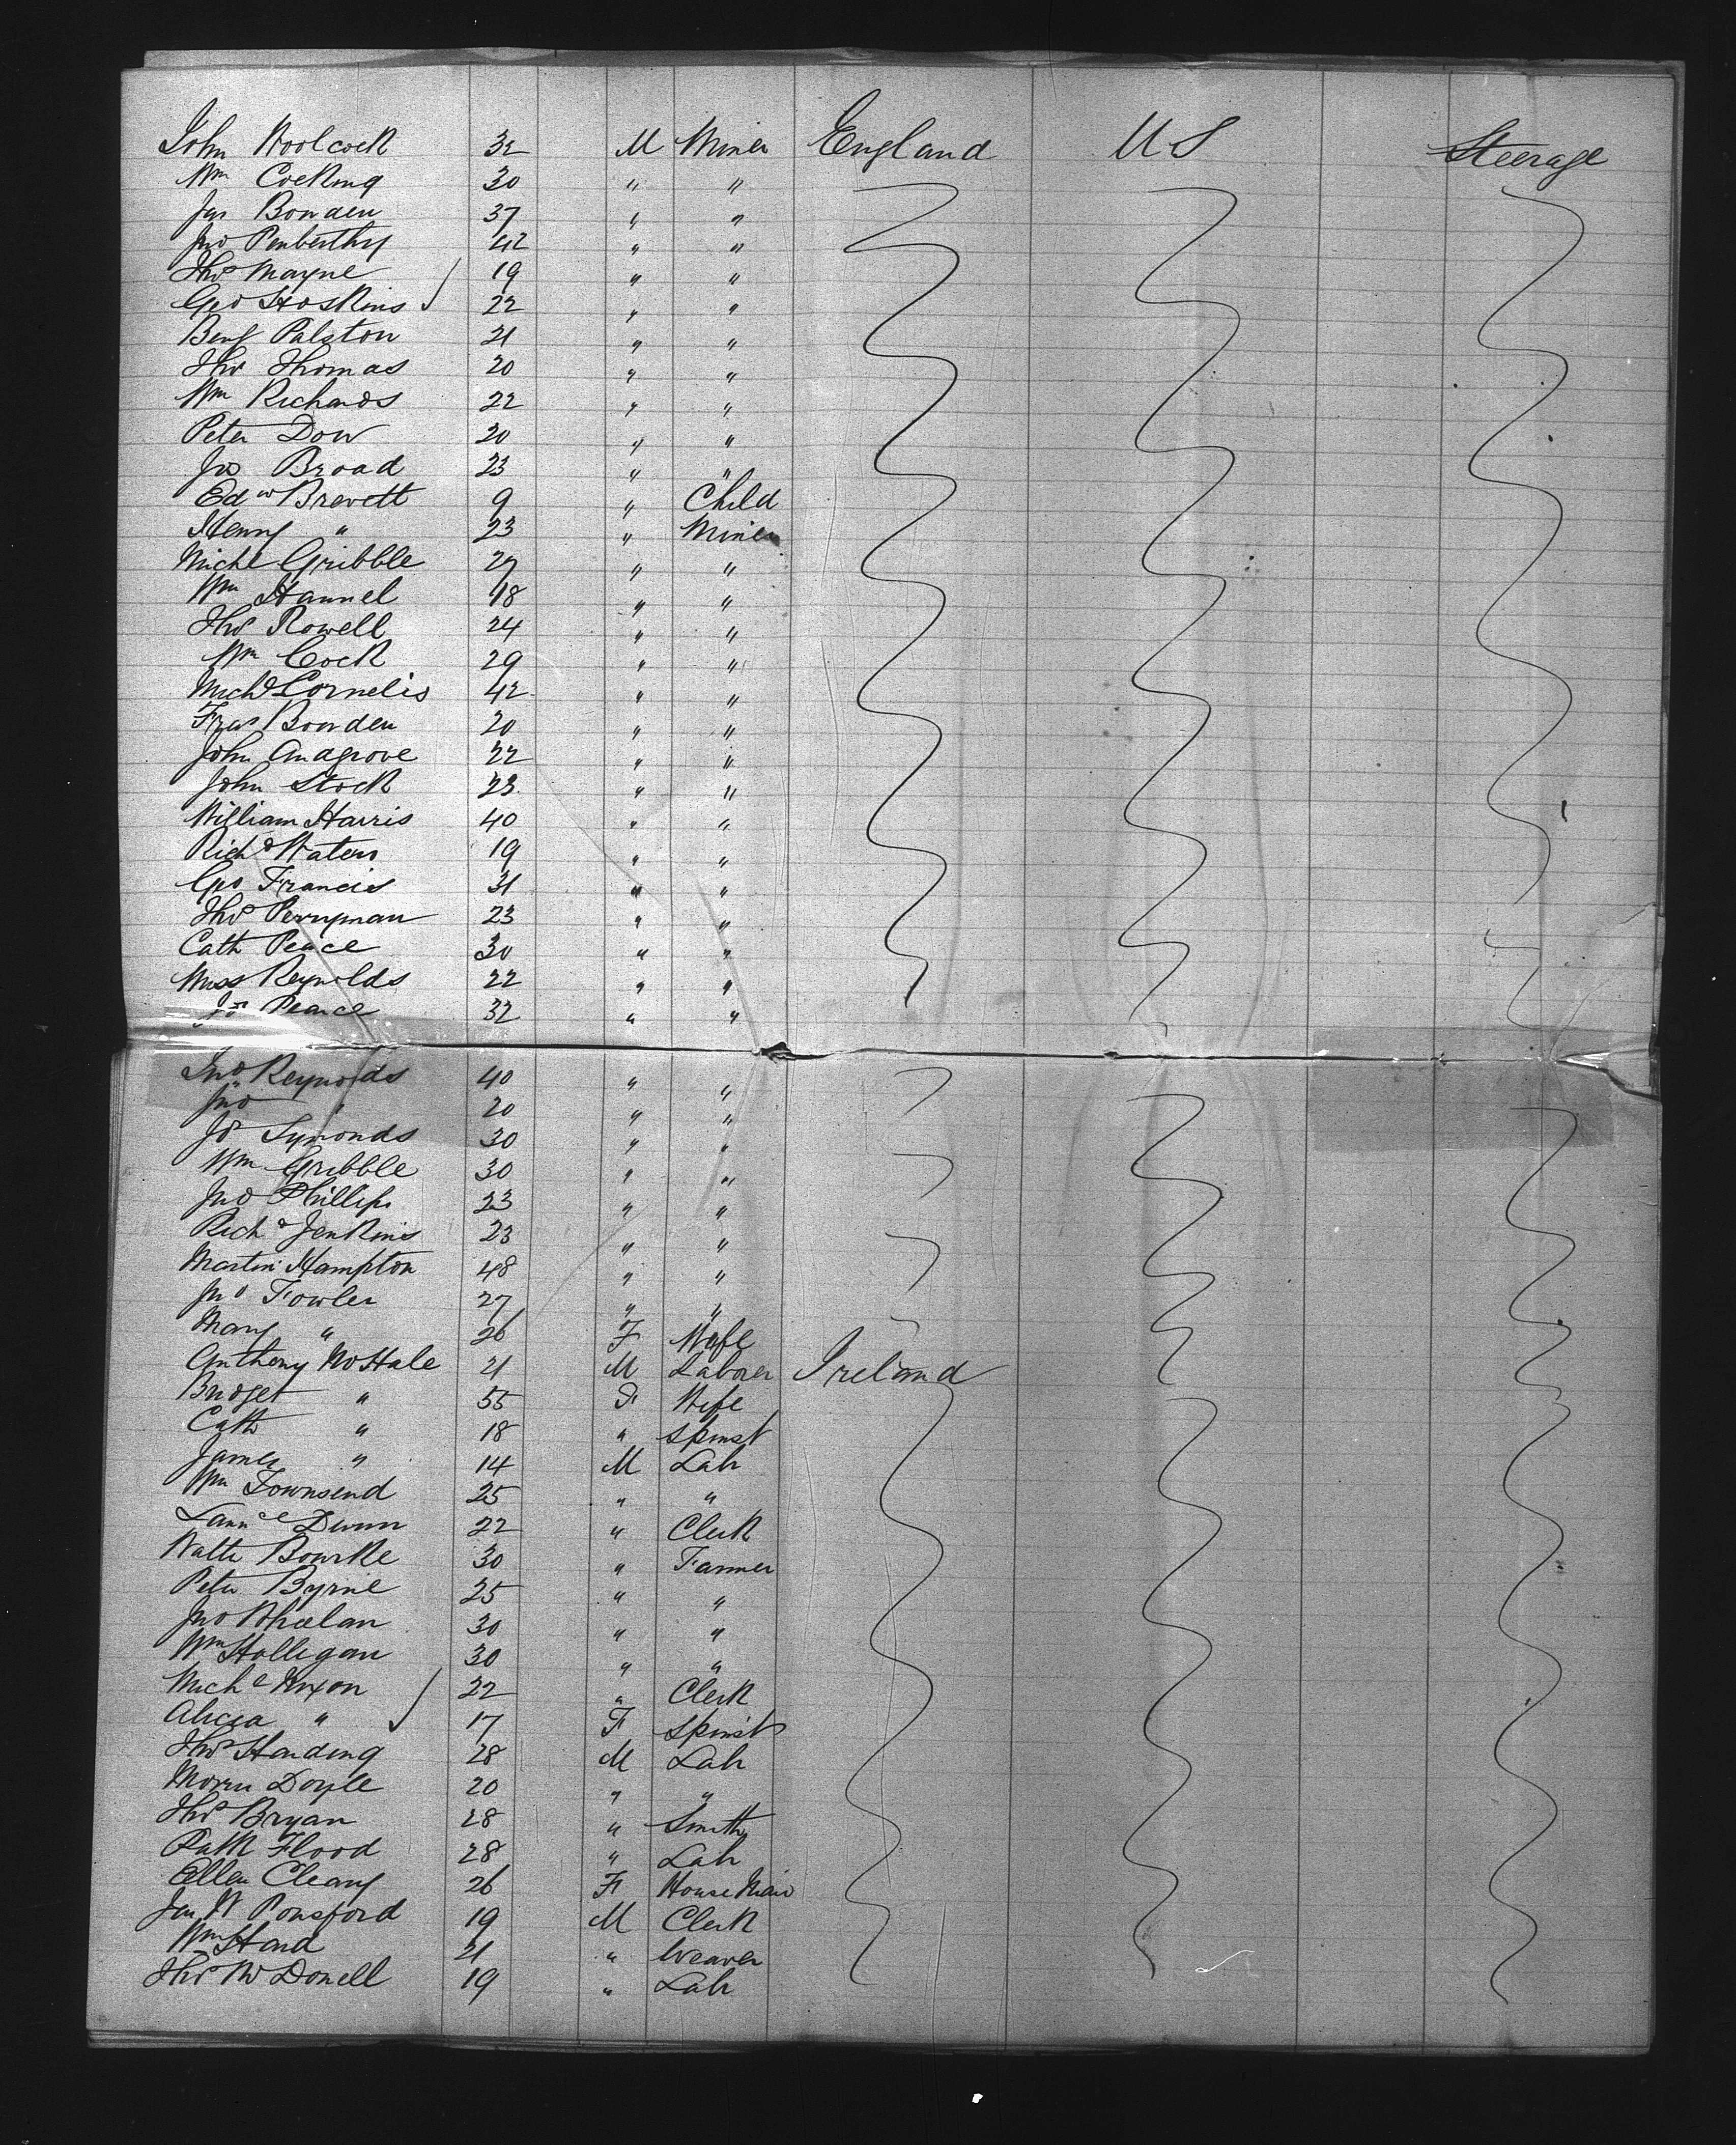 John Woolcock 32 M Miner England US Steerage
Wm Cocking 30 " "
Jas Bowden 37 " "
Jno Penberthy 42 " "
Thos Mayne 19 " "
Geo Hoskins 22 " "
Benj Palston 21 " "
Thos Thomas 20 " "
Wm Richards 22 " "
Peter Dow 20 " "
Jas Broad 23 " "
Edw Brevett 9 " Child
Henry " 23 " Miner
Michl Gribble 27 " "
Wm Hannel 18 " "
Thos Rowell 24 " "
Wm Cock 29 " "
Michl Cornelis 42 " "
Fras Bowden 20 " "
John Andgrove 22 " "
John Stock 23 " "
William Harris 40 " "
Richd Waters 19 " "
Geo Francis 31 " "
Thos Perryman 23 " "
Cath Peace 30 " "
Reynolds 22 " "
Jos Pearce 32 " "
Jno Reynolds 40 " "
Jno " 20 " "
Jos Symonds 30 " "
Wm Gribble 30 " "
Jno Phillips 23 " "
Richd Jenkins 23 " "
Martin Hampton 48 " "
Jno Fowler 27 " "
Mary " 26 F Wife
Anthony McHale 21 M Laborer Ireland
Bridget " 55 F Wife
Cath " 18 " Spinst
James " 14 M Lab
Wm Townsend 25 " "
Lawce Dunn 22 " Clerk
Walter Bourke 30 " Farmer
Peter Byrne 25 " "
Jno Whelan 30 " "
Wm Halligan 30 " "
Michl Nixon 22 " Clerk
Alicia " 17 F Spinst
Thos Harding 28 M Lab
Morris Doyle 20 " "
Thos Bryan 28 " Smith
Patk Flood 28 " Lab
Ellen Cleary 26 F House Maid
Jas W Ponsford 19 M Clerk
Wm Hand 21 " Weaver
Thos McDonell 19 " Lab